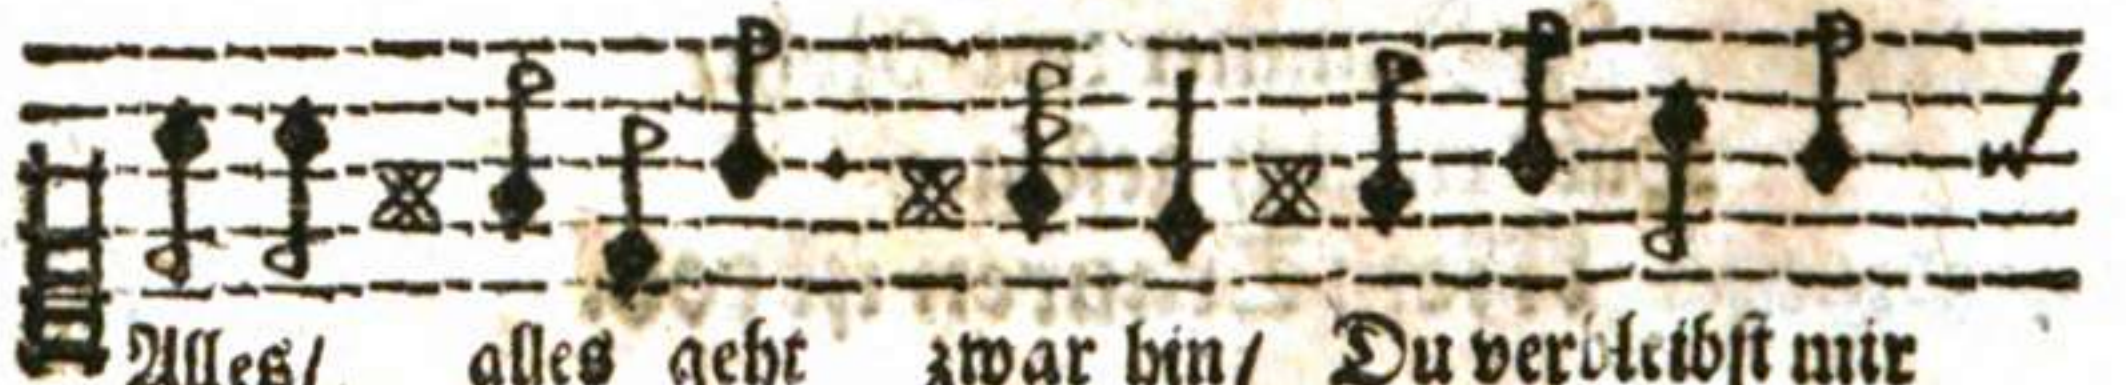 Alles/ alles geht zwar hin/ Du verbleibst mir